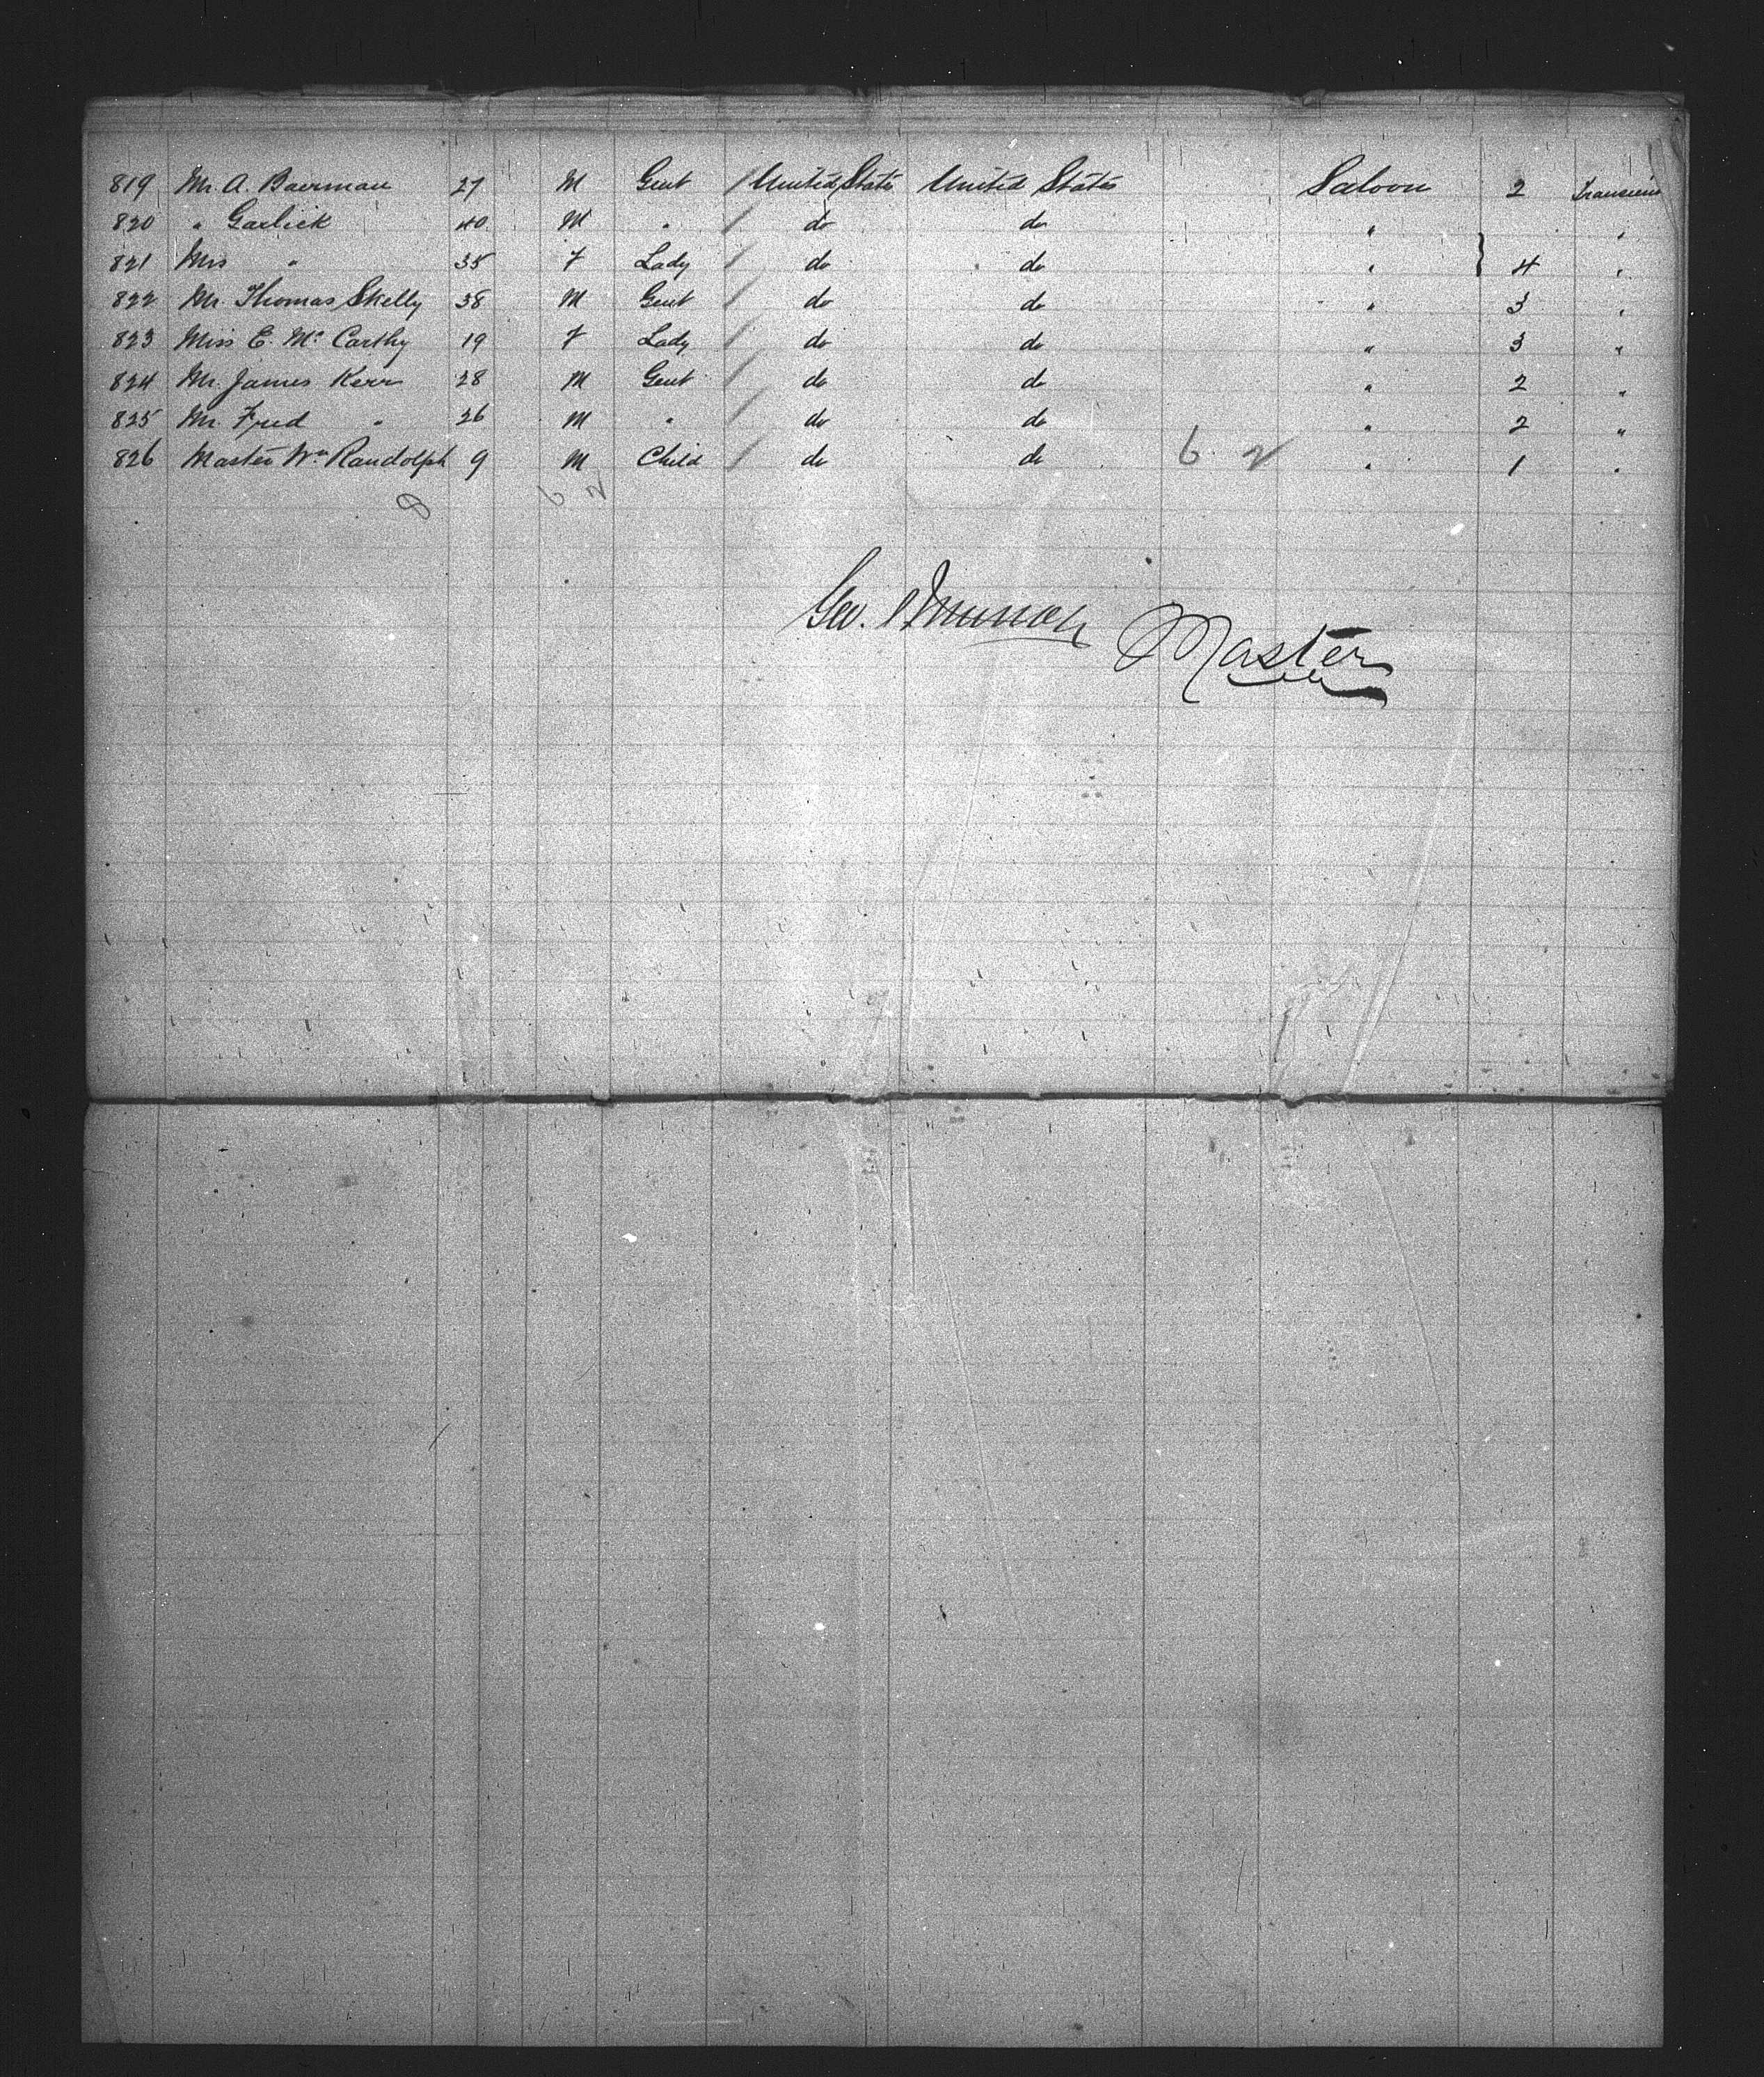 819 Mr. A. Baerman 27 M Gent / United States United States Saloon 2 Transient
820 " Garlick 40 M " / do do " "
821 Mrs " 35 F Lady / do do " } 4 "
822 Mr. Thomas Skelly 38 M Gent / do do " 3 "
823 Miss E. Mc Carthy 19 F Lady / do do " 3 "
824 Mr. James Kerr 28 M Gent / do do " 2 "
825 Mr. Fred " 26 M " / do do " 2 "
826 Master Wm Randolph 9 M Child / do do 6 2 " 1 "
8 6 2
Geo.
Master